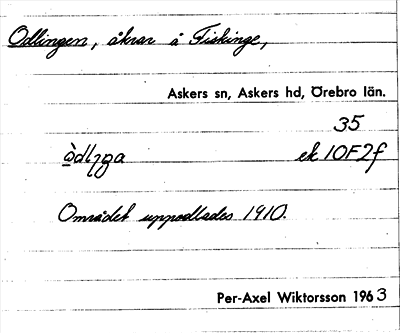 Odlingen, åkrar å Fiskinge,
Askers sn, Askers hd, Örebro län.
35
ek 10F2f
Området uppodlades 1910.
Per-Axel Wiktorsson 1963